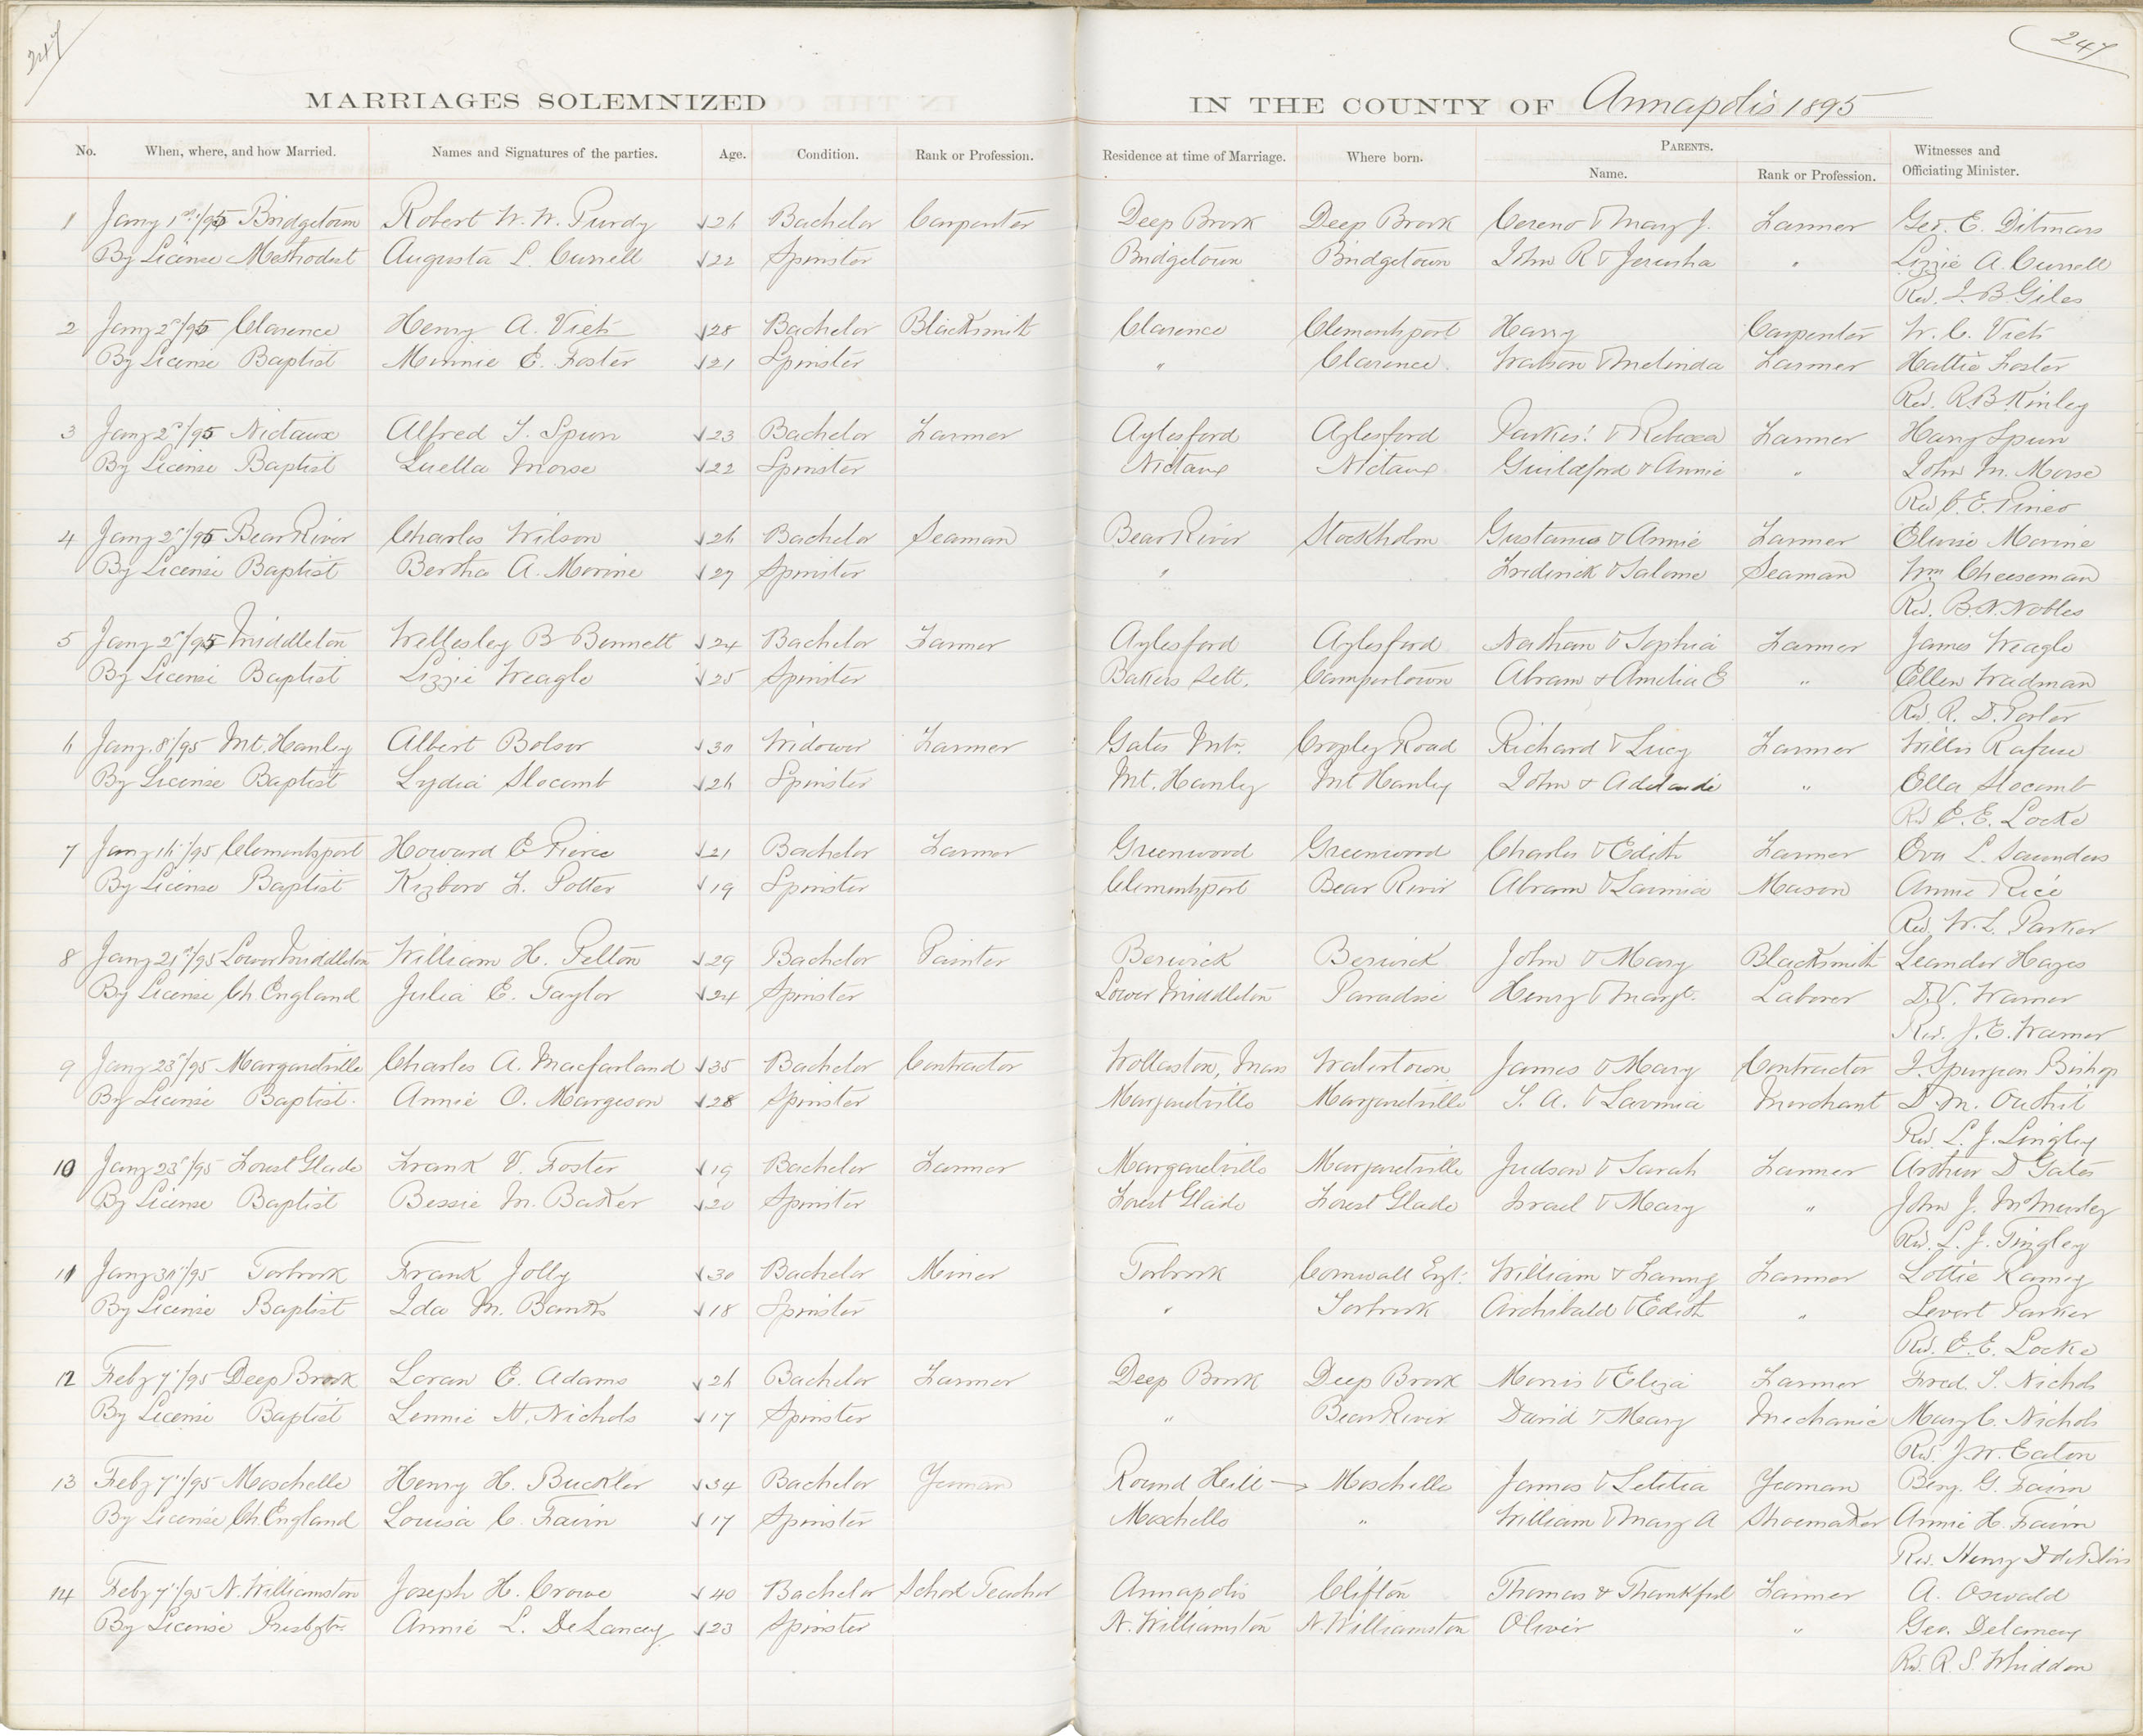 247
247
MARRIAGES SOLEMNIZED IN THE COUNTY OF Annapolis 1895
No. When, where, and how Married. Names and Signatures of the parties. Age. Condition. Rank or Profession. Residence at time of Marriage. Where born. PARENTS. Name. Rank or Profession. Witnesses and Officiating Minister.
1 Jany 1st/95 Bridgetown Robert W. W. Purdy 26 Bachelor Carpenter Deep Brook Deep Brook Cereno & Mary J. Farmer Geo. E. Ditmars
By License Methodist Augusta L. Currell 22 Spinster Bridgetown Bridgetown John R & Jerusha " Lizzie A. Currell
Rev. J. B. Giles
2 Jany 2d/95 Clarence Henry A. Viets 28 Bachelor Blacksmith Clarence Clementsport Harry Carpenter W. C. Viets
By License Baptist Minnie E. Foster 21 Spinster " Clarence Watson & Melinda Farmer Hattie Foster
Rev. R. B. Kinley
3 Jany 2d/95 Nictaux Alfred T. Spurr 23 Bachelor Farmer Aylesford Aylesford & Rebecca Farmer Harry Spurr
By License Baptist Luella Morse 22 Spinster Nictaux Nictaux Guildford & Annie " John M. Morse
Rev C. E. Pineo
4 Jany 2d/95 Bear River Charles Wilson 26 Bachelor Seaman Bear River Stockholm Gustanus & Annie Farmer Elvise Morine
By License Baptist Bertha A. Morine 27 Spinster " Fredirick & Salome Seaman Wm Cheeseman
Rev. B. N. Nobles
5 Jany 2d/95 Middleton Wellesley B Bennett 24 Bachelor Farmer Aylesford Aylesford Nathan & Sophia Farmer James Weagle
By License Baptist Lizzie Weagle 25 Spinster Bakers Sett. Campertown Abram & Amelia E " Ellen Wadman
Rev. R. D. Porter
6 Jany. 8/95 Mt. Hanley Albert Bolsor 30 Widower Farmer Gates Mtn. Cropley Road Richard & Lucy Farmer Willis Rafuse
By License Baptist Lydia Slocomb 26 Spinster Mt. Hanley Mt Hanley John & Adelaide " Ella Slocomb
Rev E. E. Locke
7 Jany 16/95 Clementsport Howard E Pierce 21 Bachelor Farmer Greenwood Greenwood Charles & Edith Farmer Eva L. Saunders
By License Baptist Kizboro F. Potter 19 Spinster Clementsport Bear River Abram & Lavinia Mason Annie Rice
Rev. W. L. Parker
8 Jany 21st/95 Lower Middleton William H. Pelton 29 Bachelor Painter Berwick Berwick John & Mary Blacksmith Leander Hazes
By License Ch England Julia E. Taylor 24 Spinster Lower Middleton Paradise Henry & Margt. Laborer D. V. Warner
Rev. J. E. Warner
9 Jany 23d/95 Margaretville Charles A. Macfarland 35 Bachelor Contractor Wollaston, Mass Watertown James & Mary Contractor J. Spurgeon Bishop
By License Baptist. Annie O. Margeson 28 Spinster Margaretville Margaretville T. A. & Lavinia Merchant D. M. Outhit
Rev. L. J. Tingley
10 Jany 23d/95 Forest Glade Frank V. Foster 19 Bachelor Farmer Margaretville Margaretville Judson & Sarah Farmer Arthur D Gates
By License Baptist Bessie M. Baker 20 Spinster Forest Glade Forest Glade Israel & Mary " John J.
Rev. L. J. Tingley
11 Jany 30/95 Torbrook Frank Jolly 30 Bachelor Miner Torbrook Cornwall Eng. William & Fanny Farmer Lottie Ramey
By License Baptist Ida M. Banks 18 Spinster " Torbrook Archibald & Edith " Levert Parker
Rev. E. E. Locke
12 Feby 7/95 Deep Brook Loran E. Adams 26 Bachelor Farmer Deep Brook Deep Brook Morris & Eliza Farmer Fred. T. Nichols
By License Baptist Lennie H. Nichols 17 Spinster " Bear River David & Mary Mechanic Mary C. Nichols
Rev. J. W. Eaton
13 Feby 7/95 Moschelle Henry H. Buckler 34 Bachelor Yeoman Round Hill Moschelle James & Letitia Yeoman Benj. G. Fairn
By License Ch England Louisa C. Fairn 17 Spinster Moschelle " William & Mary A Shoemaker Annie H. Fairn
Rev. Henry D de Blois
14 Feby 7/95 N. Williamston Joseph H. Crowe 40 Bachelor School Teacher Annapolis Clifton Thomas & Thankful Farmer A. Oswald
By License Presbytn. Annie L. DeLancey 23 Spinster N. Williamston N. Williamston Oliver " Geo. Delancey
Rev. R. S. Whidden